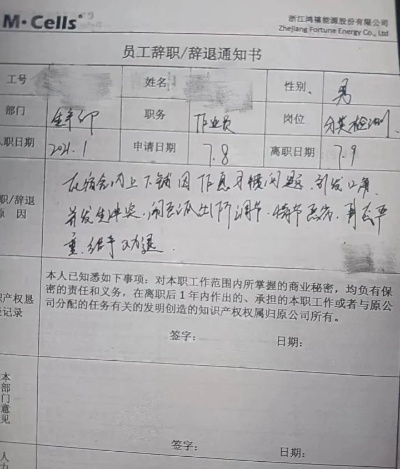 M·Cells
浙江鸿禧能源股份有限公司
Zhejiang Fortune Energy Co., Ltd
员工辞职/辞退通知书
工号 姓名: 性别 男
部门 生产部 职务 作业员 岗位 分类检测
职日期 2021.1 申请日期 7.8 离职日期 7.9
职/辞退
原 因
在宿舍内上下铺因作息习惯问题,引发口角
并发生冲突,闹至派出所调节,情节恶劣,
重,给予劝退.
识产权悬
记录
本人已知悉如下事项:对本职工作范围内所掌握的商业秘密,均负有保
密的责任和义务,在离职后1年内作出的、承担的本职工作或者与原公
司分配的任务有关的发明创造的知识产权权属归原公司所有。
签字: 日期:
本
部
门
意
见
签字: 日期:
人